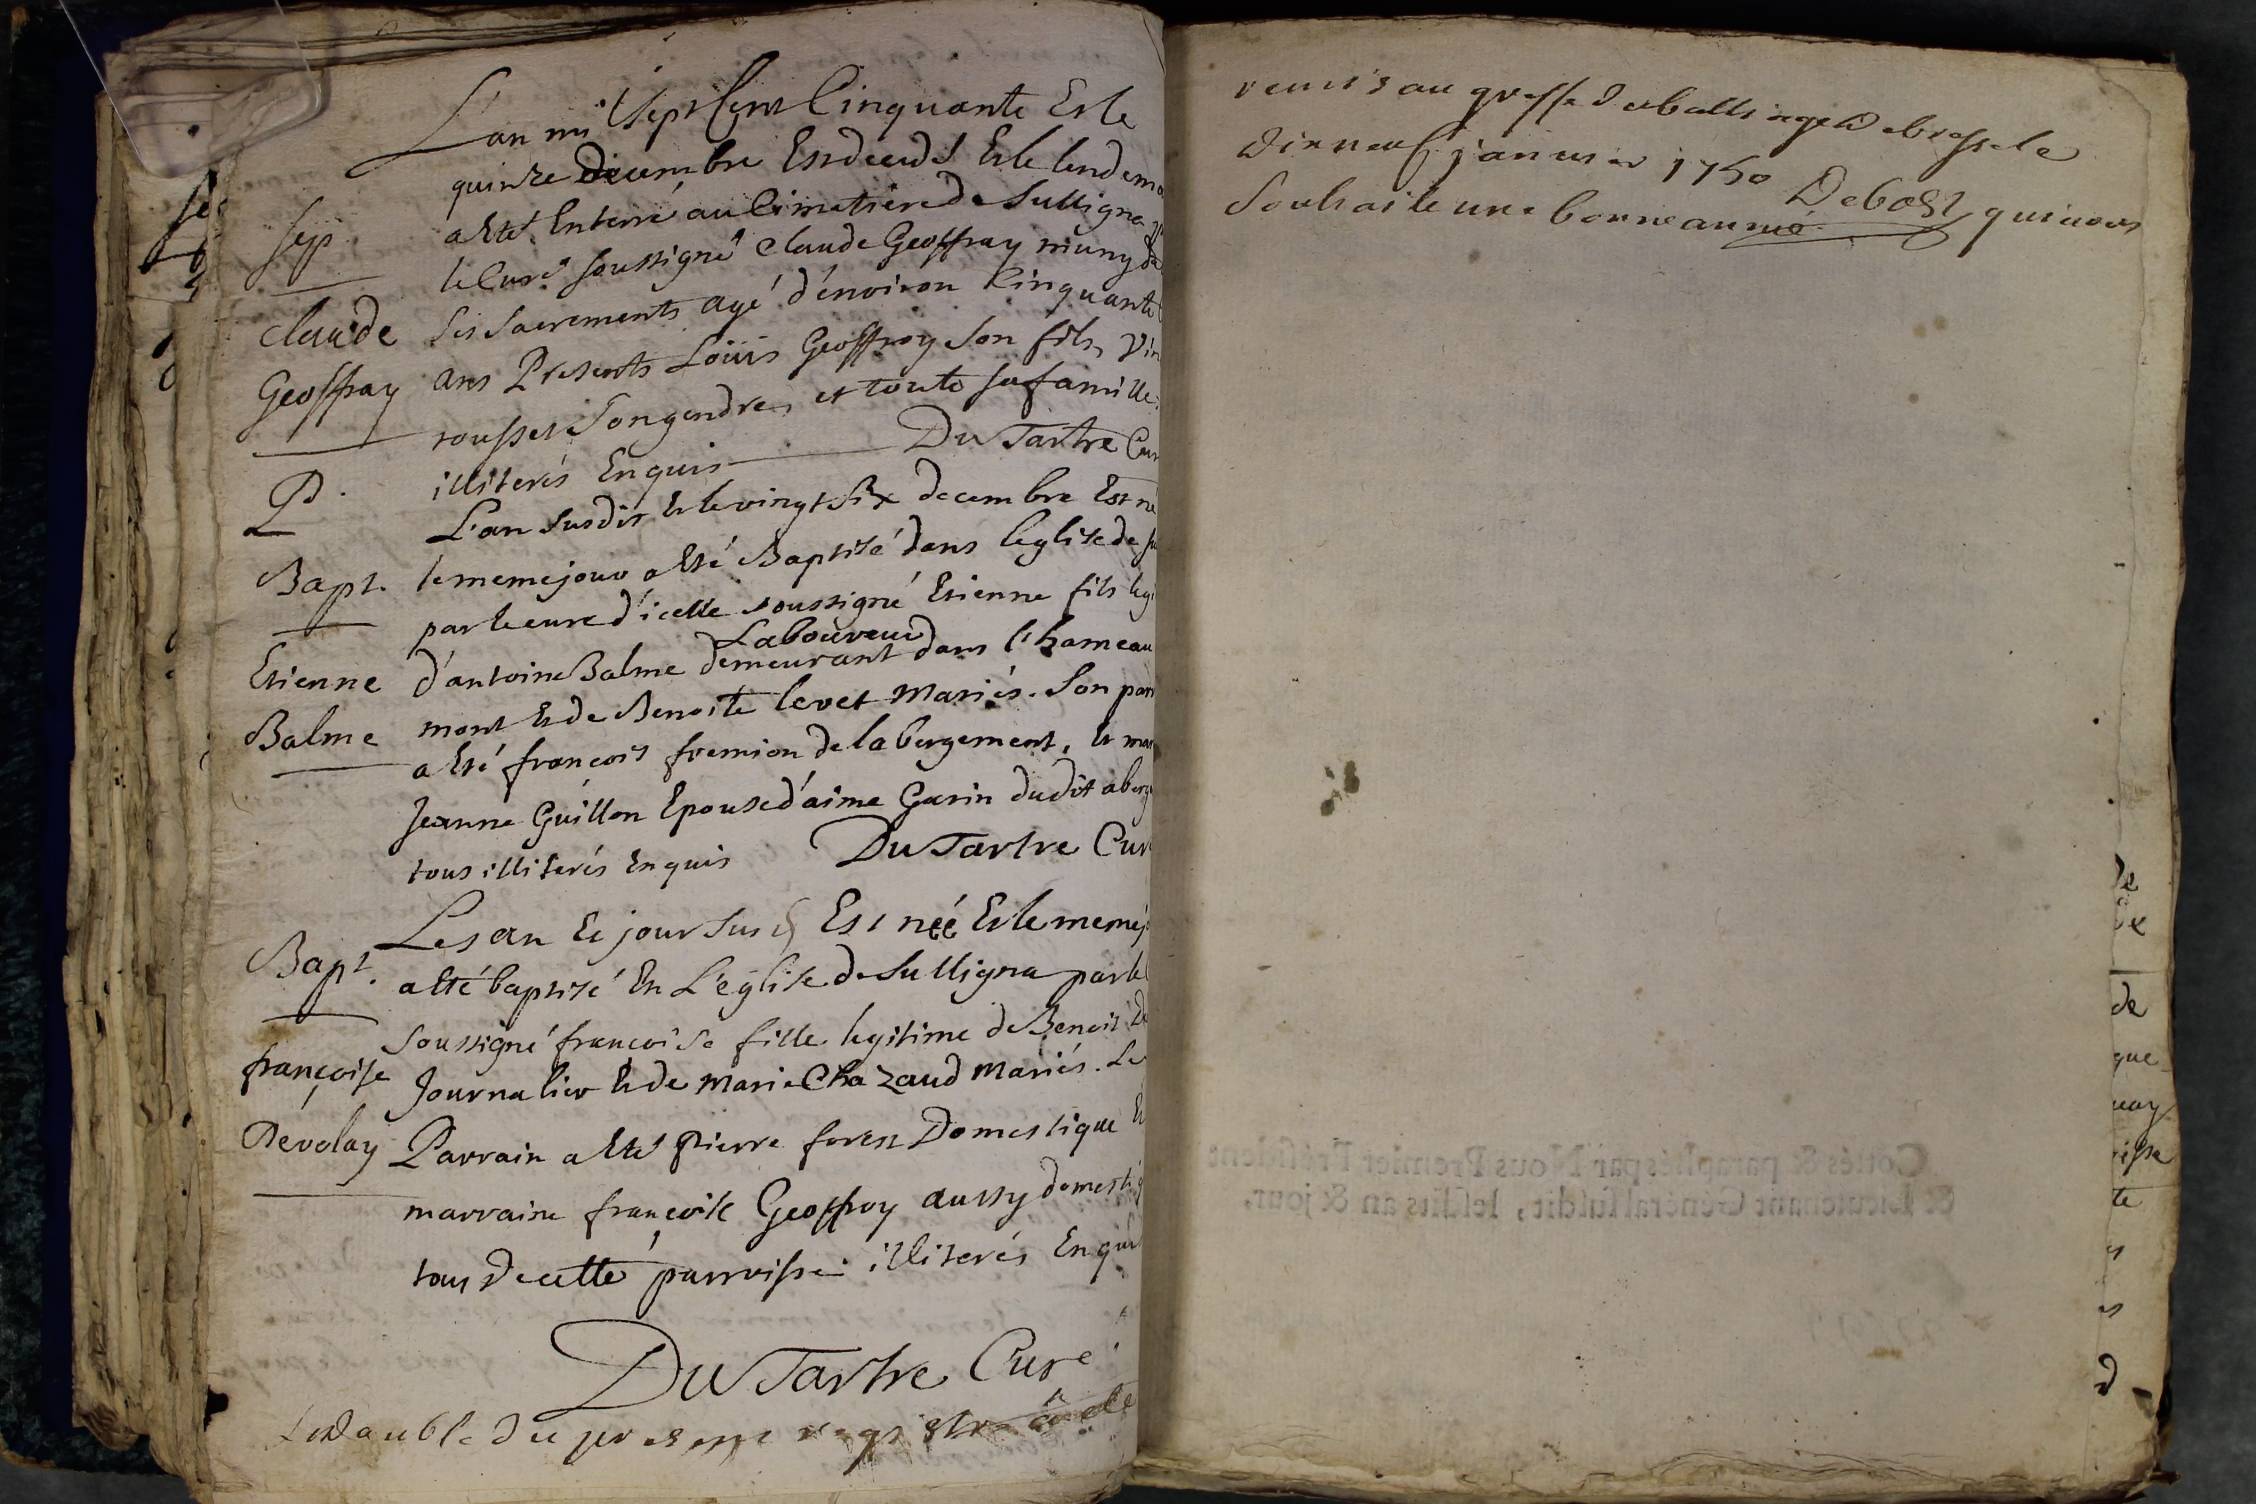 L'an mil sept Cent Cinquante Et le
quinze Decembre Est decedé Et le lendema
Sep. a Eté Enterré au Cimetiere de Sulligna
le Curé soussigné Claude Geoffray muny de
Claude ses sacrements agé d'énviron Cinquante
Geoffray ans Presents Loüis Geoffroy son fils, Vin
rousset son gendre, et toute sa famille
P. illiterés Enquis Du Tartre Cur
L'an susdit Et le vingt six decembre Est né
Bapt. le meme jour a Eté Baptisé dans leglise de su
par le curé d'icelle soussigné Etienne fils legi
Laboureur
Etienne d'antoine Balme demeurant dans l'hameau
Balme mont Et de Benoite levet Mariés. Son parr
a Eté françois fremion de labergement, Et mar
Jeanne Guillon Epouse d'aimé Garin dudit aberg
tous illiterés Enquis Du Tartre Cur
Les an Et jour susd Est néé Et le meme j
Bapt. a Eté baptisé En L'église de Sulligna par le
soussigné françoise fille legitime de Benoit De
françoise Journalier Et de Marie Chazaud Mariés. Le
Devolay Parrain a Eté Pierre forest Domestique Et
marraine françoise Geoffroy aussy domestiq
tous de cette parroisse illiterés Enquis
Du Tartre Curé
Le double du present registre a eté
remis au greffe du balliage de bresse le
dix neuf janvier 1750 Debost qui vous
Souhaite une bonne année
de
que
te
Cottés & paraphés par Nous Premier Président
& Lieutenant Général susdit, lesdits an & jour,